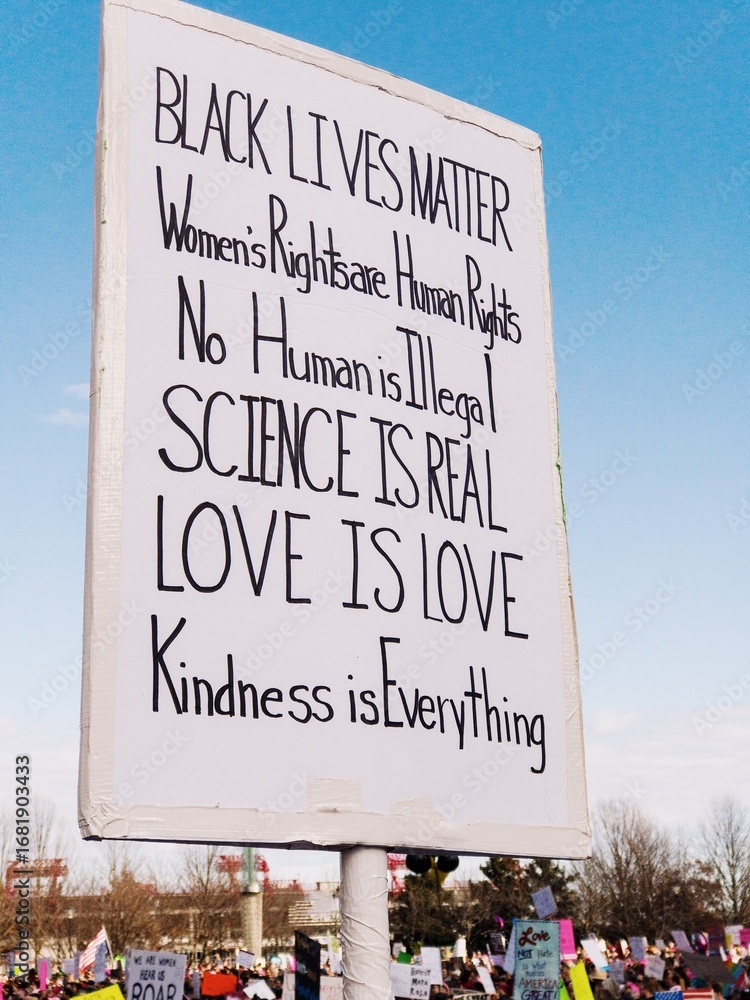 BLACK LIVES MATTER
Women's Rights are Human Rights
No Human is Illegal
SCIENCE IS REAL
LOVE IS LOVE
Kindness is Everything
WE ARE WOMEN
HEAR US
ROAR
Love
NOT Hate
is what
makes
AMERICA
GREAT
Adobe Stock | #1681903433